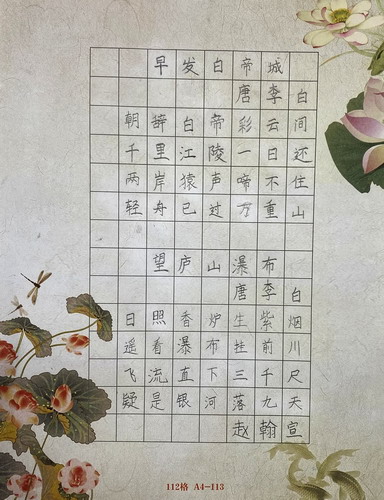 早发白帝城
唐李白
朝辞白帝彩云间
千里江陵一日还
两岸猿声啼不住
轻舟已过万重山
望庐山瀑布
唐李白
日照香炉生紫烟
遥看瀑布挂前川
飞流直下三千尺
疑是银河落九天
赵翰宣
112格 A4-113